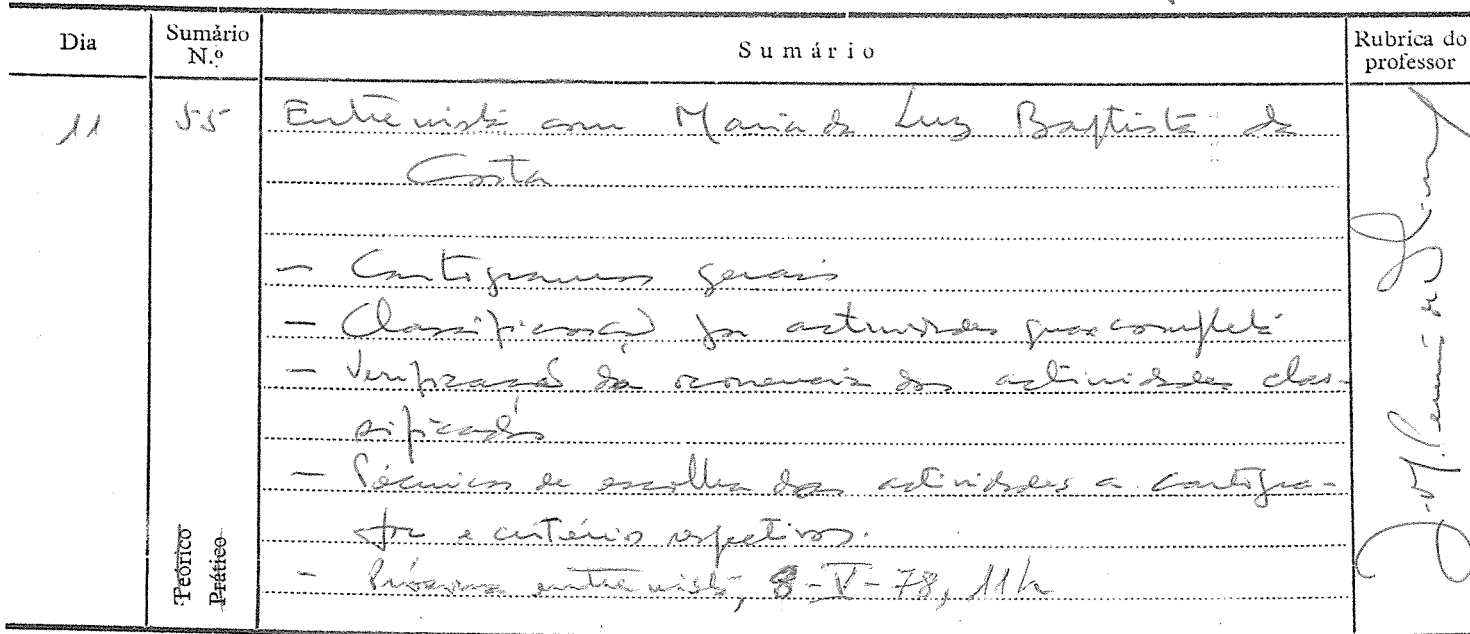 Dia
Sumário N.º
Sumário
Rubrica do professor
11
55
Entrevista com Maria da Luz Baptista da
Costa
- Cartogramas gerais
- Classificação por actividades quase completa
- Verificação da ocorrencia das actividades clas-
sificadas
- Técnicas de escolha das actividades a cartogra-
far e critério respectivos.
- Próxima entrevista, 8-V-78, 11h
Teórico
Prático